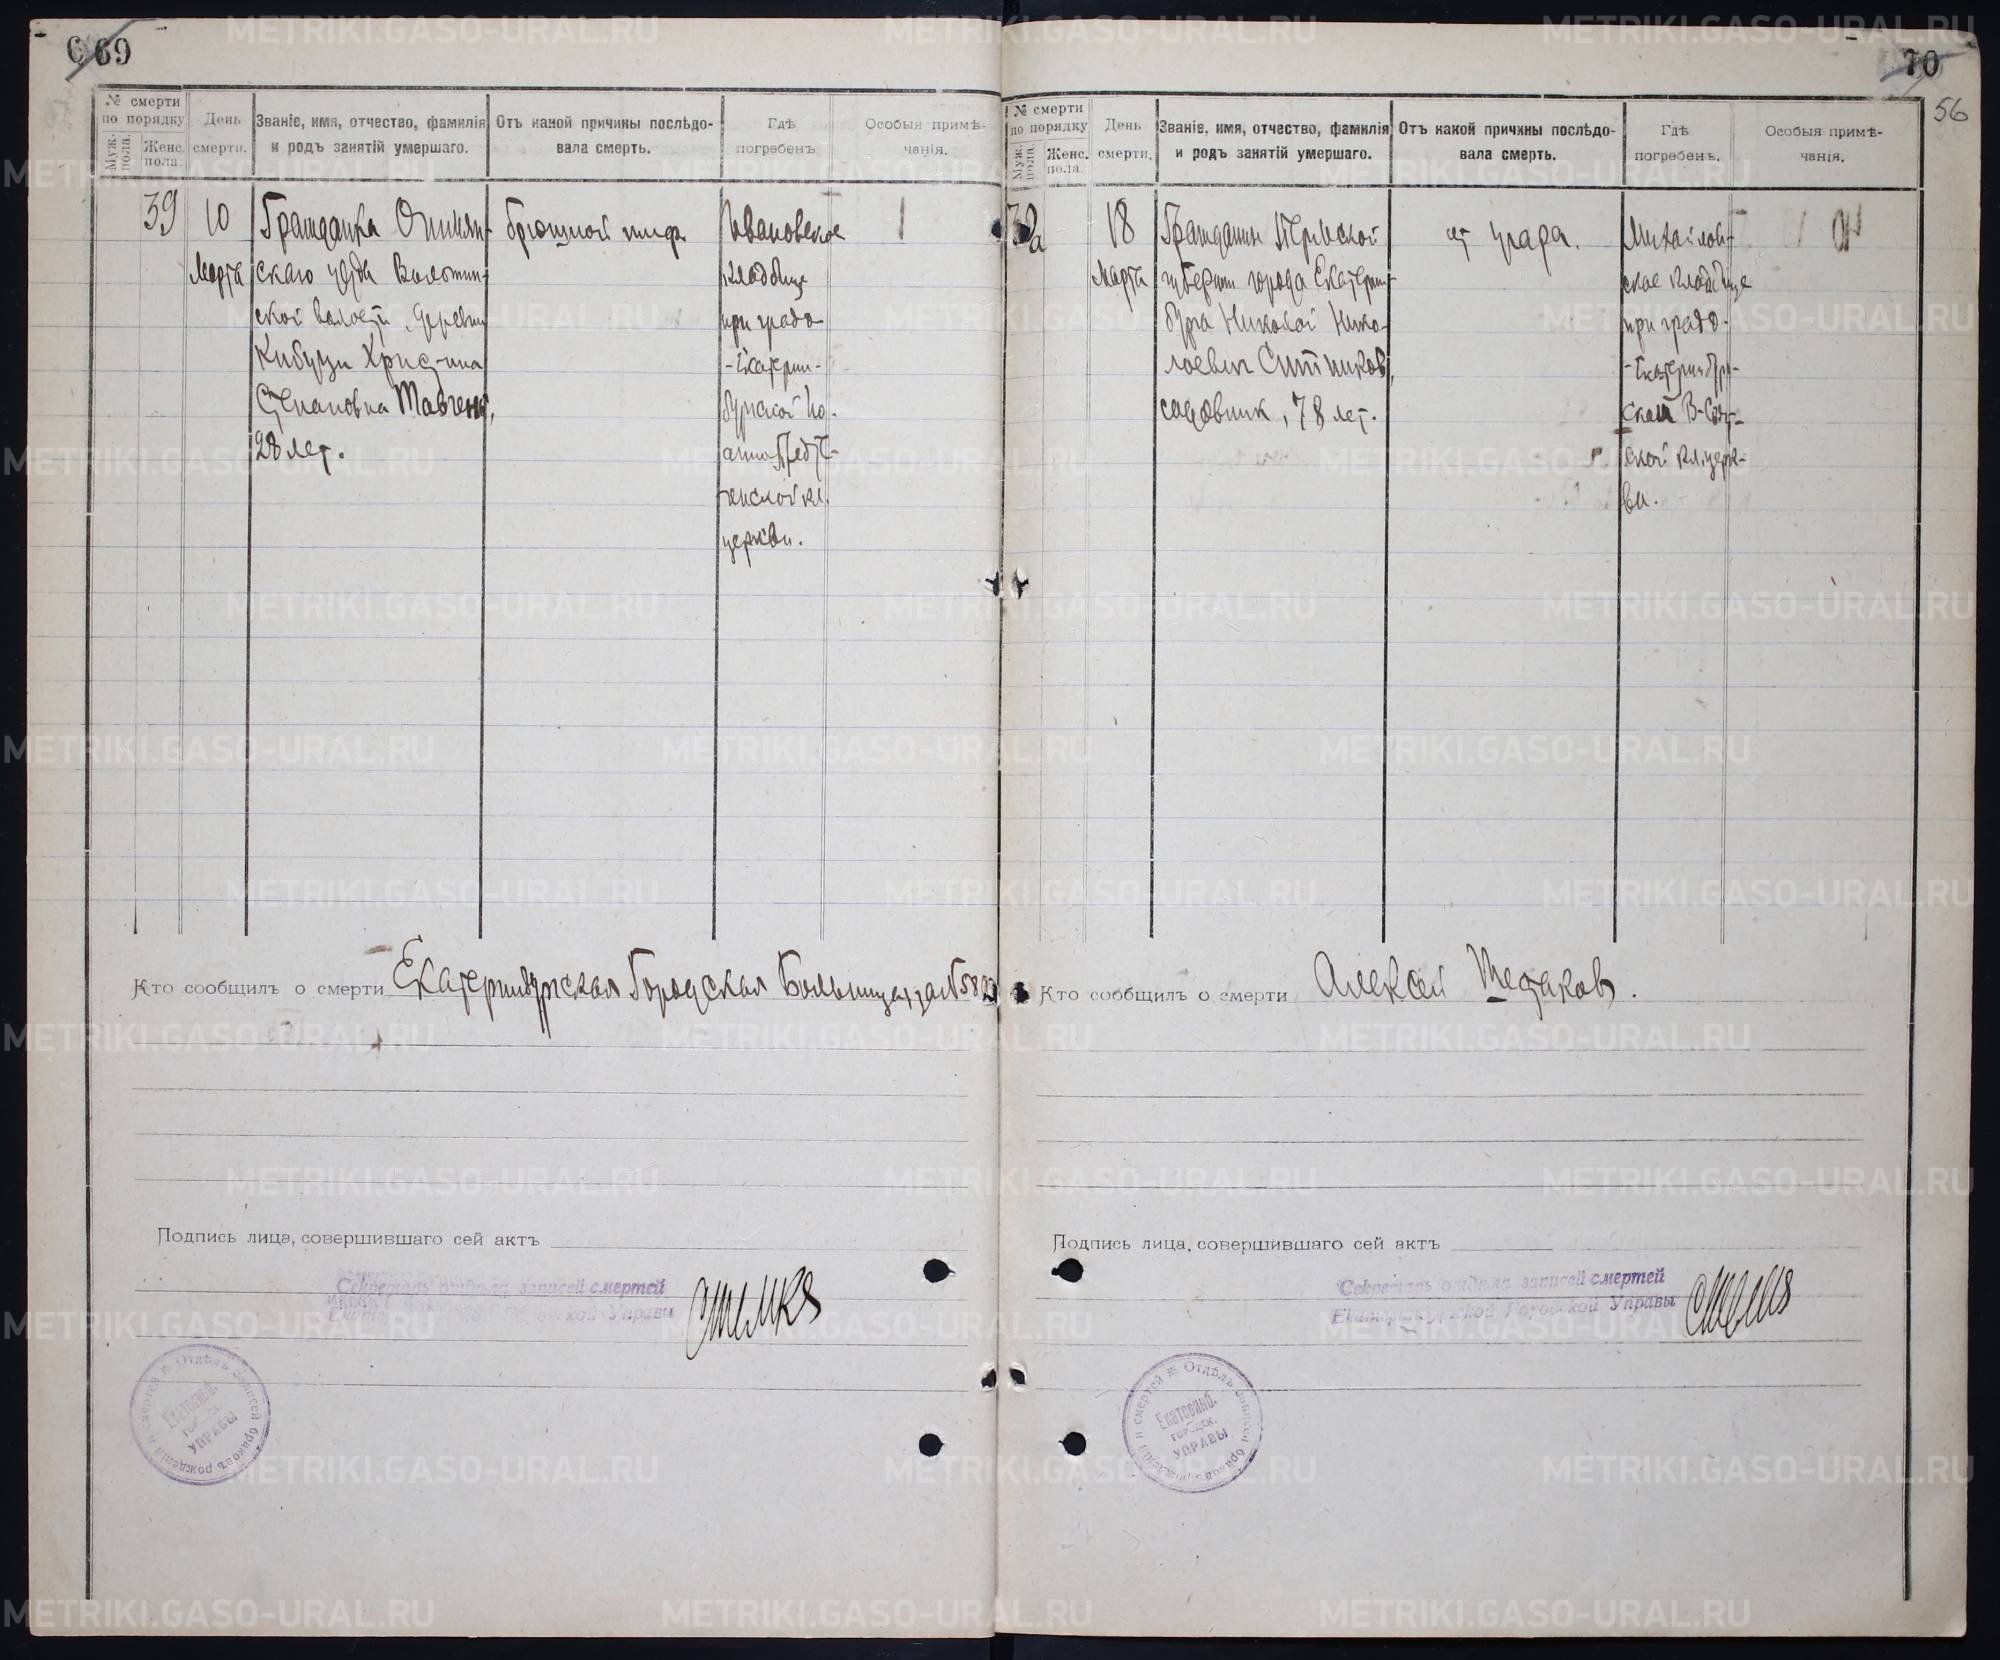 69
№ смерти
по порядку
Муж. пола.
Женс. пола.
День
смерти.
Званіе, имя, отчество, фамилія
и родъ занятій умершаго.
Отъ какой причины послѣдо-
вала смерть.
Гдѣ
погребенъ.
Особыя примѣ-
чанія.
39
10
Марта
Гражданка
скаго уезда
ской волости, деревни
Христина
Степановна
28 лет.
брюшной тиф
Ивановское
кладбище
при градо
-Екатерин-
бургской Іо-
анно Предте-
ченской кл.
церкви.
1
Кто сообщилъ о смерти Екатеринбургская Городская Больница за №
Подпись лица, совершившаго сей актъ
Секретарь отдѣла записей смертей
Екатеринбургской Городской Управы
Отдѣлъ записей браковъ рожденій и смертей
Екатеринб.
городск.
УПРАВЫ
70
56
№ смерти
по порядку
Муж. пола.
Женс. пола.
День
смерти.
Званіе, имя, отчество, фамилія
и родъ занятій умершаго.
Отъ какой причины послѣдо-
вала смерть.
Гдѣ
погребенъ.
Особыя примѣ-
чанія.
18
Марта
Гражданин Пермской
губернии города Екатерин-
бурга Николай Нико-
лаевич Ситников,
садовник, 78 лет.
от угара.
Михайлов-
ское кладбище
при градо-
-Екатеринбург-
ской В-Свят-
ской кл. церк-
ви.
Кто сообщилъ о смерти Алексей Шестаков.
Подпись лица, совершившаго сей актъ
Секретарь отдѣла записей смертей
Екатеринбургской Городской Управы
Отдѣлъ записей браковъ рожденій и смертей
Екатеринб.
городск.
УПРАВЫ
METRIKI.GASO-URAL.RU